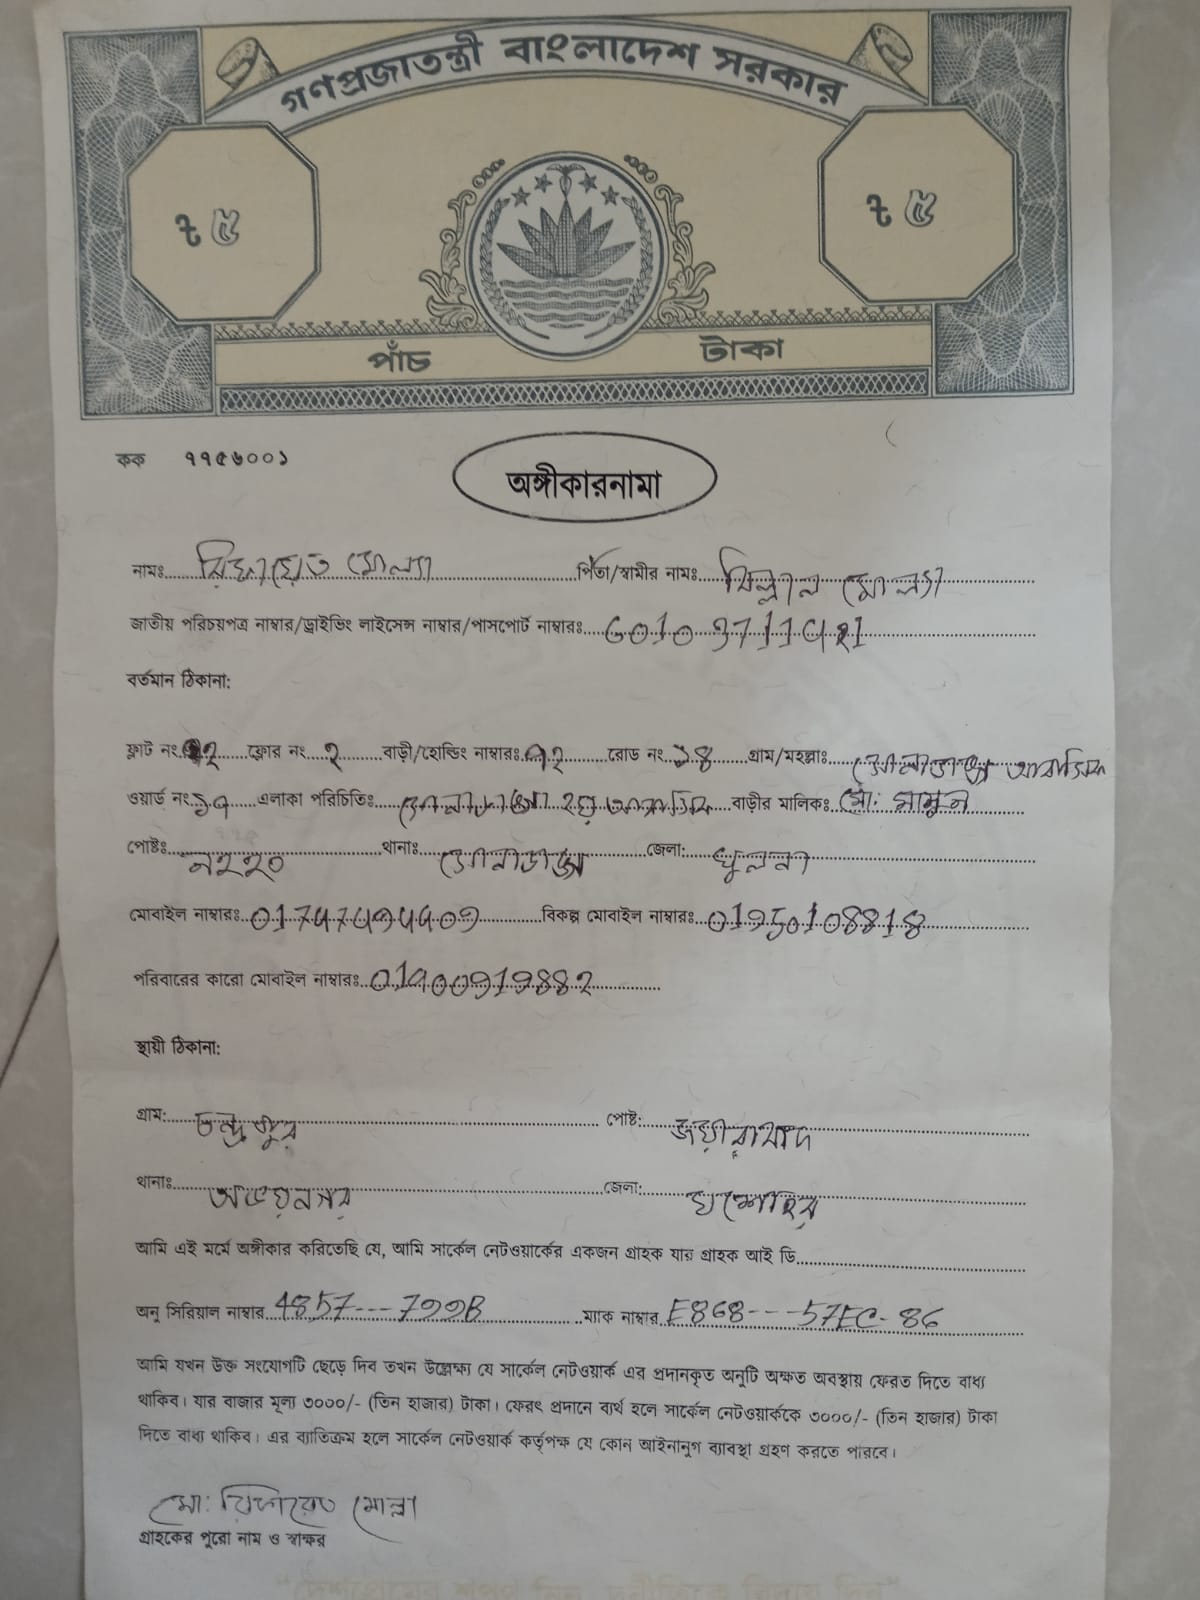 গণপ্রজাতন্ত্রী বাংলাদেশ সরকার
৳ ৫ ৳ ৫
পাঁচ টাকা
কক ৭৭৫৬০০১
অঙ্গীকারনামা
নামঃ মোল্যা পিতা/স্বামীর নামঃ বিল্লাল মোল্যা
জাতীয় পরিচয়পত্র নাম্বার/ড্রাইভিং লাইসেন্স নাম্বার/পাসপোর্ট নাম্বারঃ
বর্তমান ঠিকানা:
ফ্লাট নং ফ্লোর নং ২ বাড়ী/হোল্ডিং নাম্বারঃ ৭২ রোড নং ১৪ গ্রাম/মহল্লাঃ সোনাডাঙ্গা আবাসিক
ওয়ার্ড নং ১৭ এলাকা পরিচিতিঃ সোনাডাঙ্গা ২য় আবাসিক বাড়ীর মালিকঃ মো: মামুন
পোষ্টঃ থানাঃ সোনাডাঙ্গা জেলা: খুলনা
মোবাইল নাম্বারঃ বিকল্প মোবাইল নাম্বারঃ 01950108818
পরিবারের কারো মোবাইল নাম্বারঃ
স্থায়ী ঠিকানা:
গ্রাম: চন্দ্রপুর পোষ্ট:
থানাঃ অভয়নগর জেলা: যশোহর
আমি এই মর্মে অঙ্গীকার করিতেছি যে, আমি সার্কেল নেটওয়ার্কের একজন গ্রাহক যার গ্রাহক আই ডি
অনু সিরিয়াল নাম্বার 4857---799B ম্যাক নাম্বার E868---57EC-86
আমি যখন উক্ত সংযোগটি ছেড়ে দিব তখন উল্লেক্ষ্য যে সার্কেল নেটওয়ার্ক এর প্রদানকৃত অনুটি অক্ষত অবস্থায় ফেরত দিতে বাধ্য
থাকিব। যার বাজার মূল্য ৩০০০/- (তিন হাজার) টাকা। ফেরৎ প্রদানে ব্যর্থ হলে সার্কেল নেটওয়ার্ককে ৩০০০/- (তিন হাজার) টাকা
দিতে বাধ্য থাকিব। এর ব্যতিক্রম হলে সার্কেল নেটওয়ার্ক কর্তৃপক্ষ যে কোন আইনানুগ ব্যাবস্থা গ্রহণ করতে পারবে।
মো: মোল্লা
গ্রাহকের পুরো নাম ও স্বাক্ষর